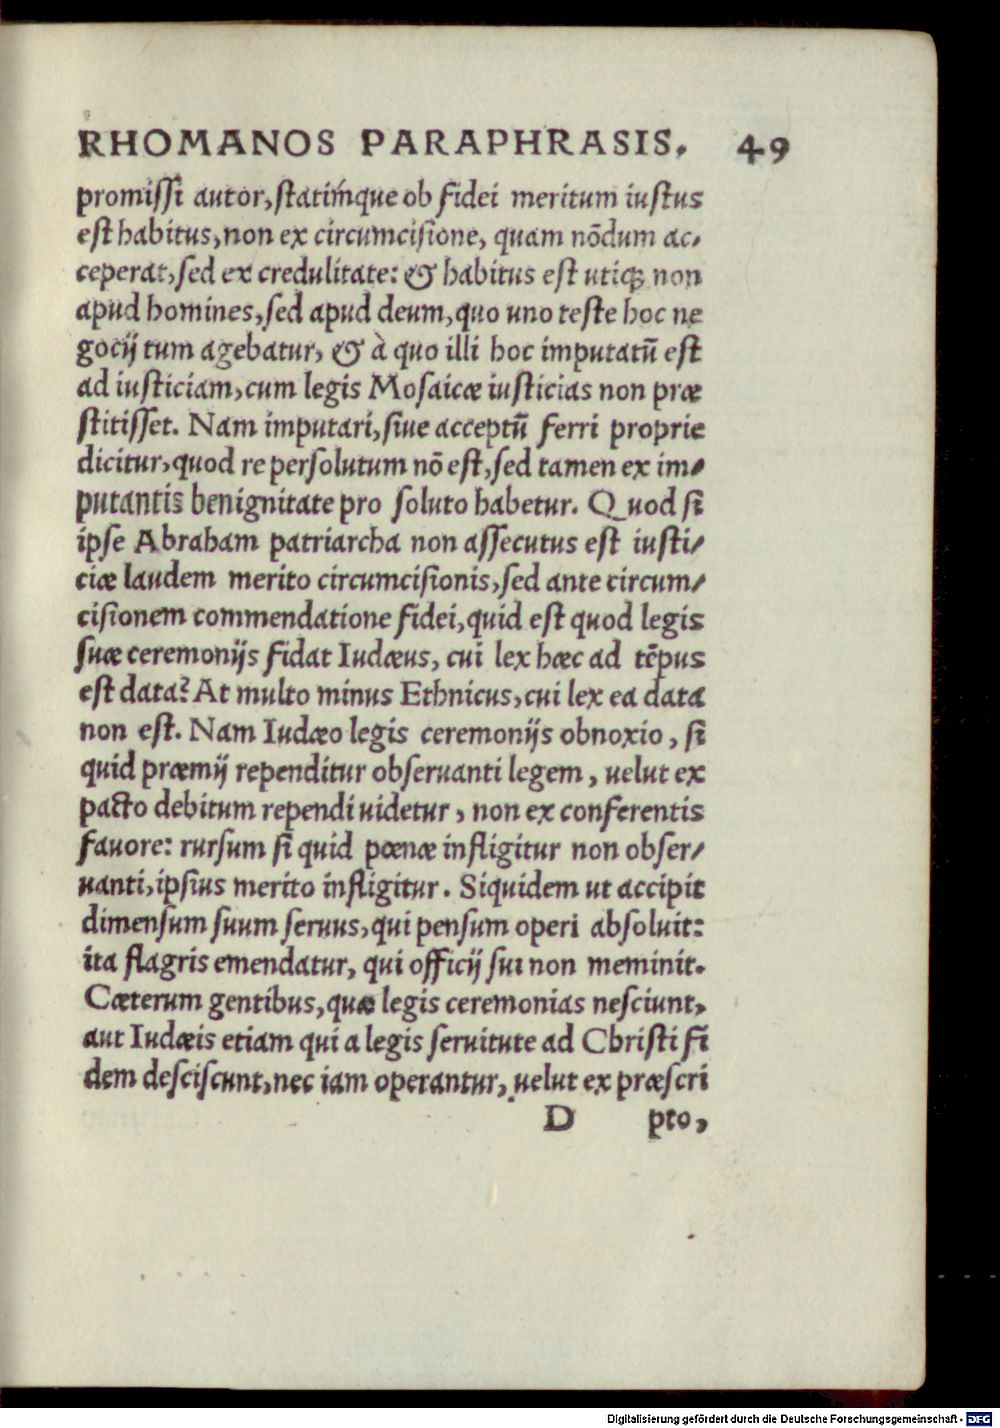 RHOMANOS PARAPHRASIS. 49
promissi autor, statiḿque ob fidei meritum iustus
est habitus, non ex circumcisione, quam nõdum ac-
ceperat, sed ex credulitate: & habitus est utiqꝫ non
apud homines, sed apud deum, quo uno teste hoc ne
gocij tum agebatur, & à quo illi hoc imputatũ est
ad iusticiam, cum legis Mosaicæ iusticias non præ
stitisset. Nam imputari, siue acceptũ ferri proprie
dicitur, quod re persolutum nõ est, sed tamen ex im-
putantis benignitate pro soluto habetur. Quod si
ipse Abraham patriarcha non assecutus est iusti-
ciæ laudem merito circumcisionis, sed ante circum-
cisionem commendatione fidei, quid est quod legis
suæ ceremonijs fidat Iudæus, cui lex hæc ad tẽpus
est data? At multo minus Ethnicus, cui lex ea data
non est. Nam Iudæo legis ceremonijs obnoxio, si
quid præmij rependitur obseruanti legem, uelut ex
pacto debitum rependi uidetur, non ex conferentis
fauore: rursum si quid pœnæ infligitur non obser-
uanti, ipsius merito infligitur. Siquidem ut accipit
dimensum suum seruus, qui pensum operi absoluit:
ita flagris emendatur, qui officij sui non meminit.
Cæterum gentibus, quæ legis ceremonias nesciunt,
aut Iudæis etiam qui a legis seruitute ad Christi fi
dem desciscunt, nec iam operantur, uelut ex præscri
D pto,
Digitalisierung gefördert durch die Deutsche Forschungsgemeinschaft - DFG